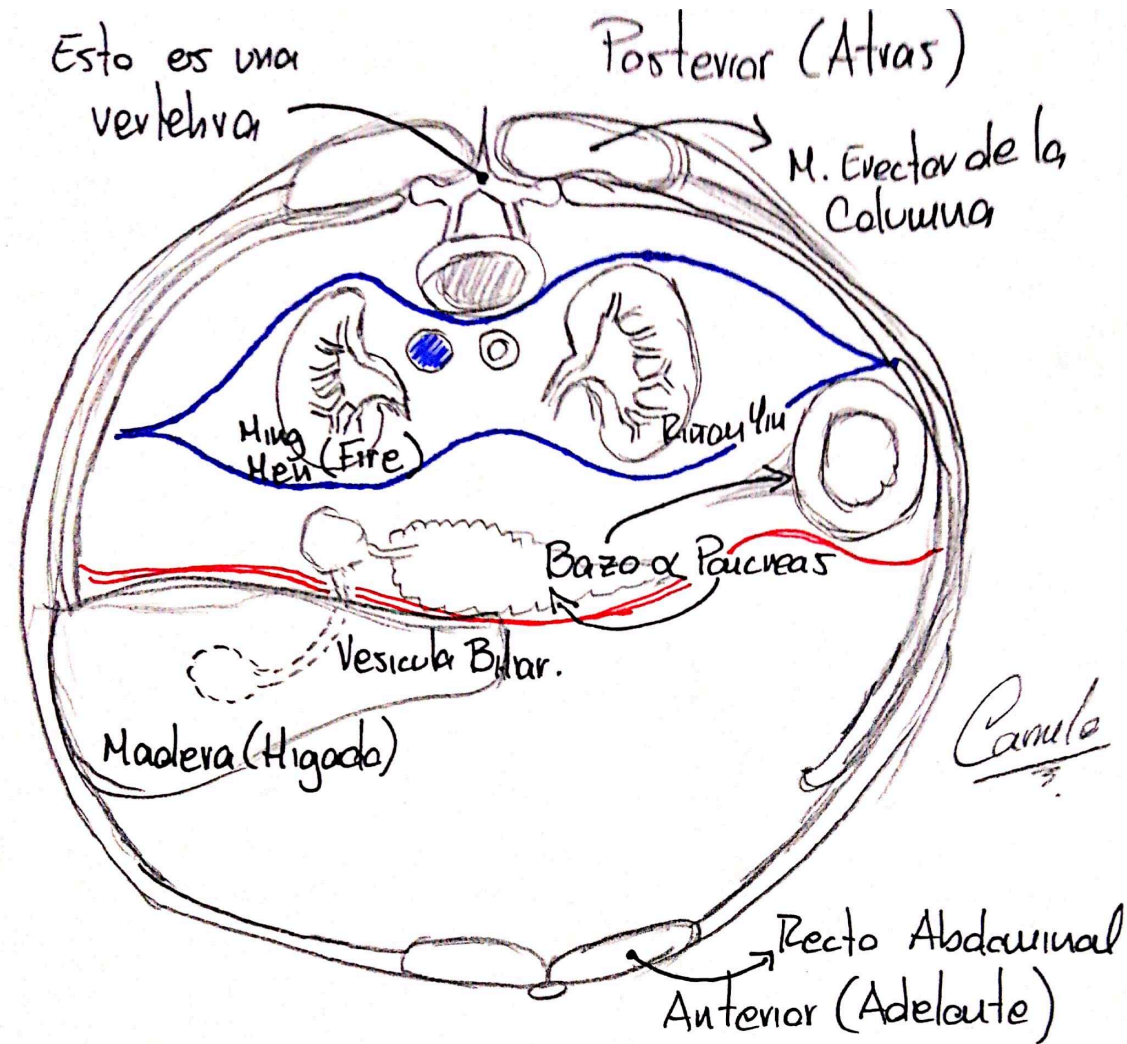 Esto es una
vertebra
Posterior (Atras)
M. Erector de la
Columna
Ming
Men (Fire)
Riñon Yin
Bazo & Páncreas
Vesicula Biliar.
Madera (Higado)
Camilo
Recto Abdominal
Anterior (Adelante)